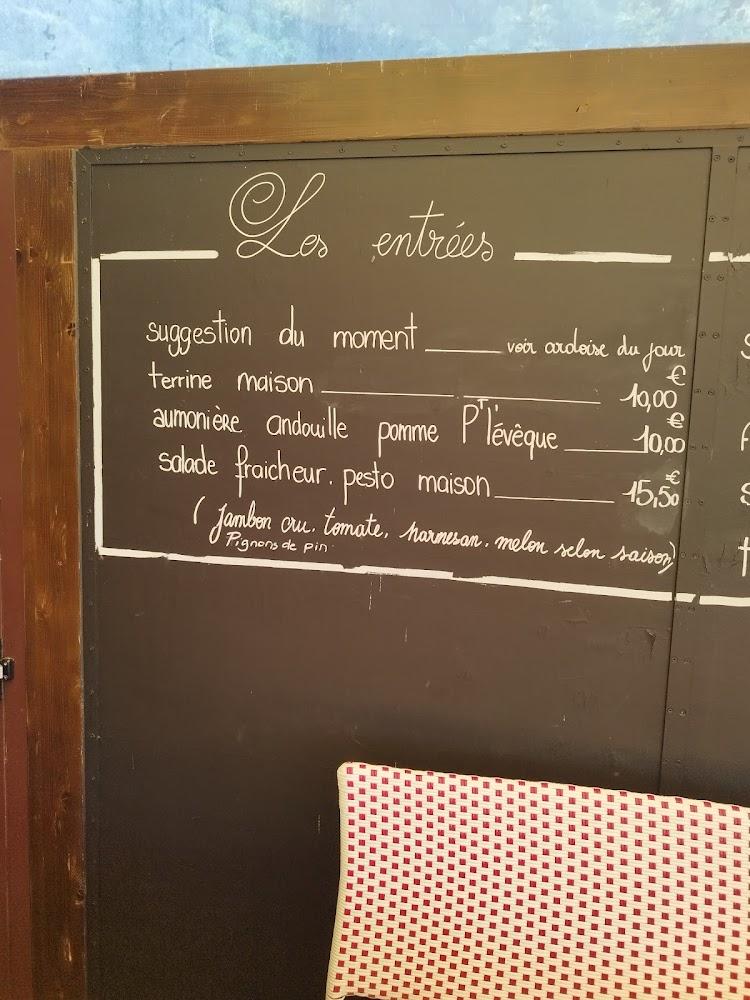 Les entrées
suggestion du moment voir ardoise du jour
terrine maison 10,00 €
aumonière andouille pomme P'T l'évêque 10,00 €
salade fraicheur. pesto maison 15,50 €
(jambon cru. tomate. parmesan. melon selon saison)
Pignons de pin